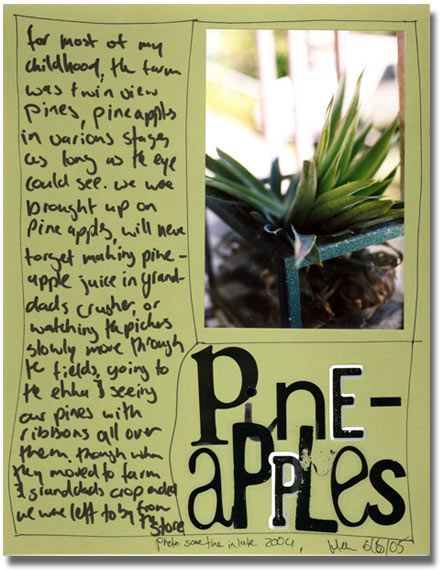 for most of my
childhood, the farm
was twin view
pines, pineapples
in various stages
as long as the eye
could see. we were
brought up on
pineapples, will never
forget making pine-
apple juice in grand-
dads crusher, or
watching the pickers
slowly move through
the fields, going to
the ekka & seeing
our pines with
ribbons all over
them, though when
they moved to farm
& granddads crop ended
we were left to buy from
the store
PinE-
aPPLes
photo some time in late 2004,
6/6/05